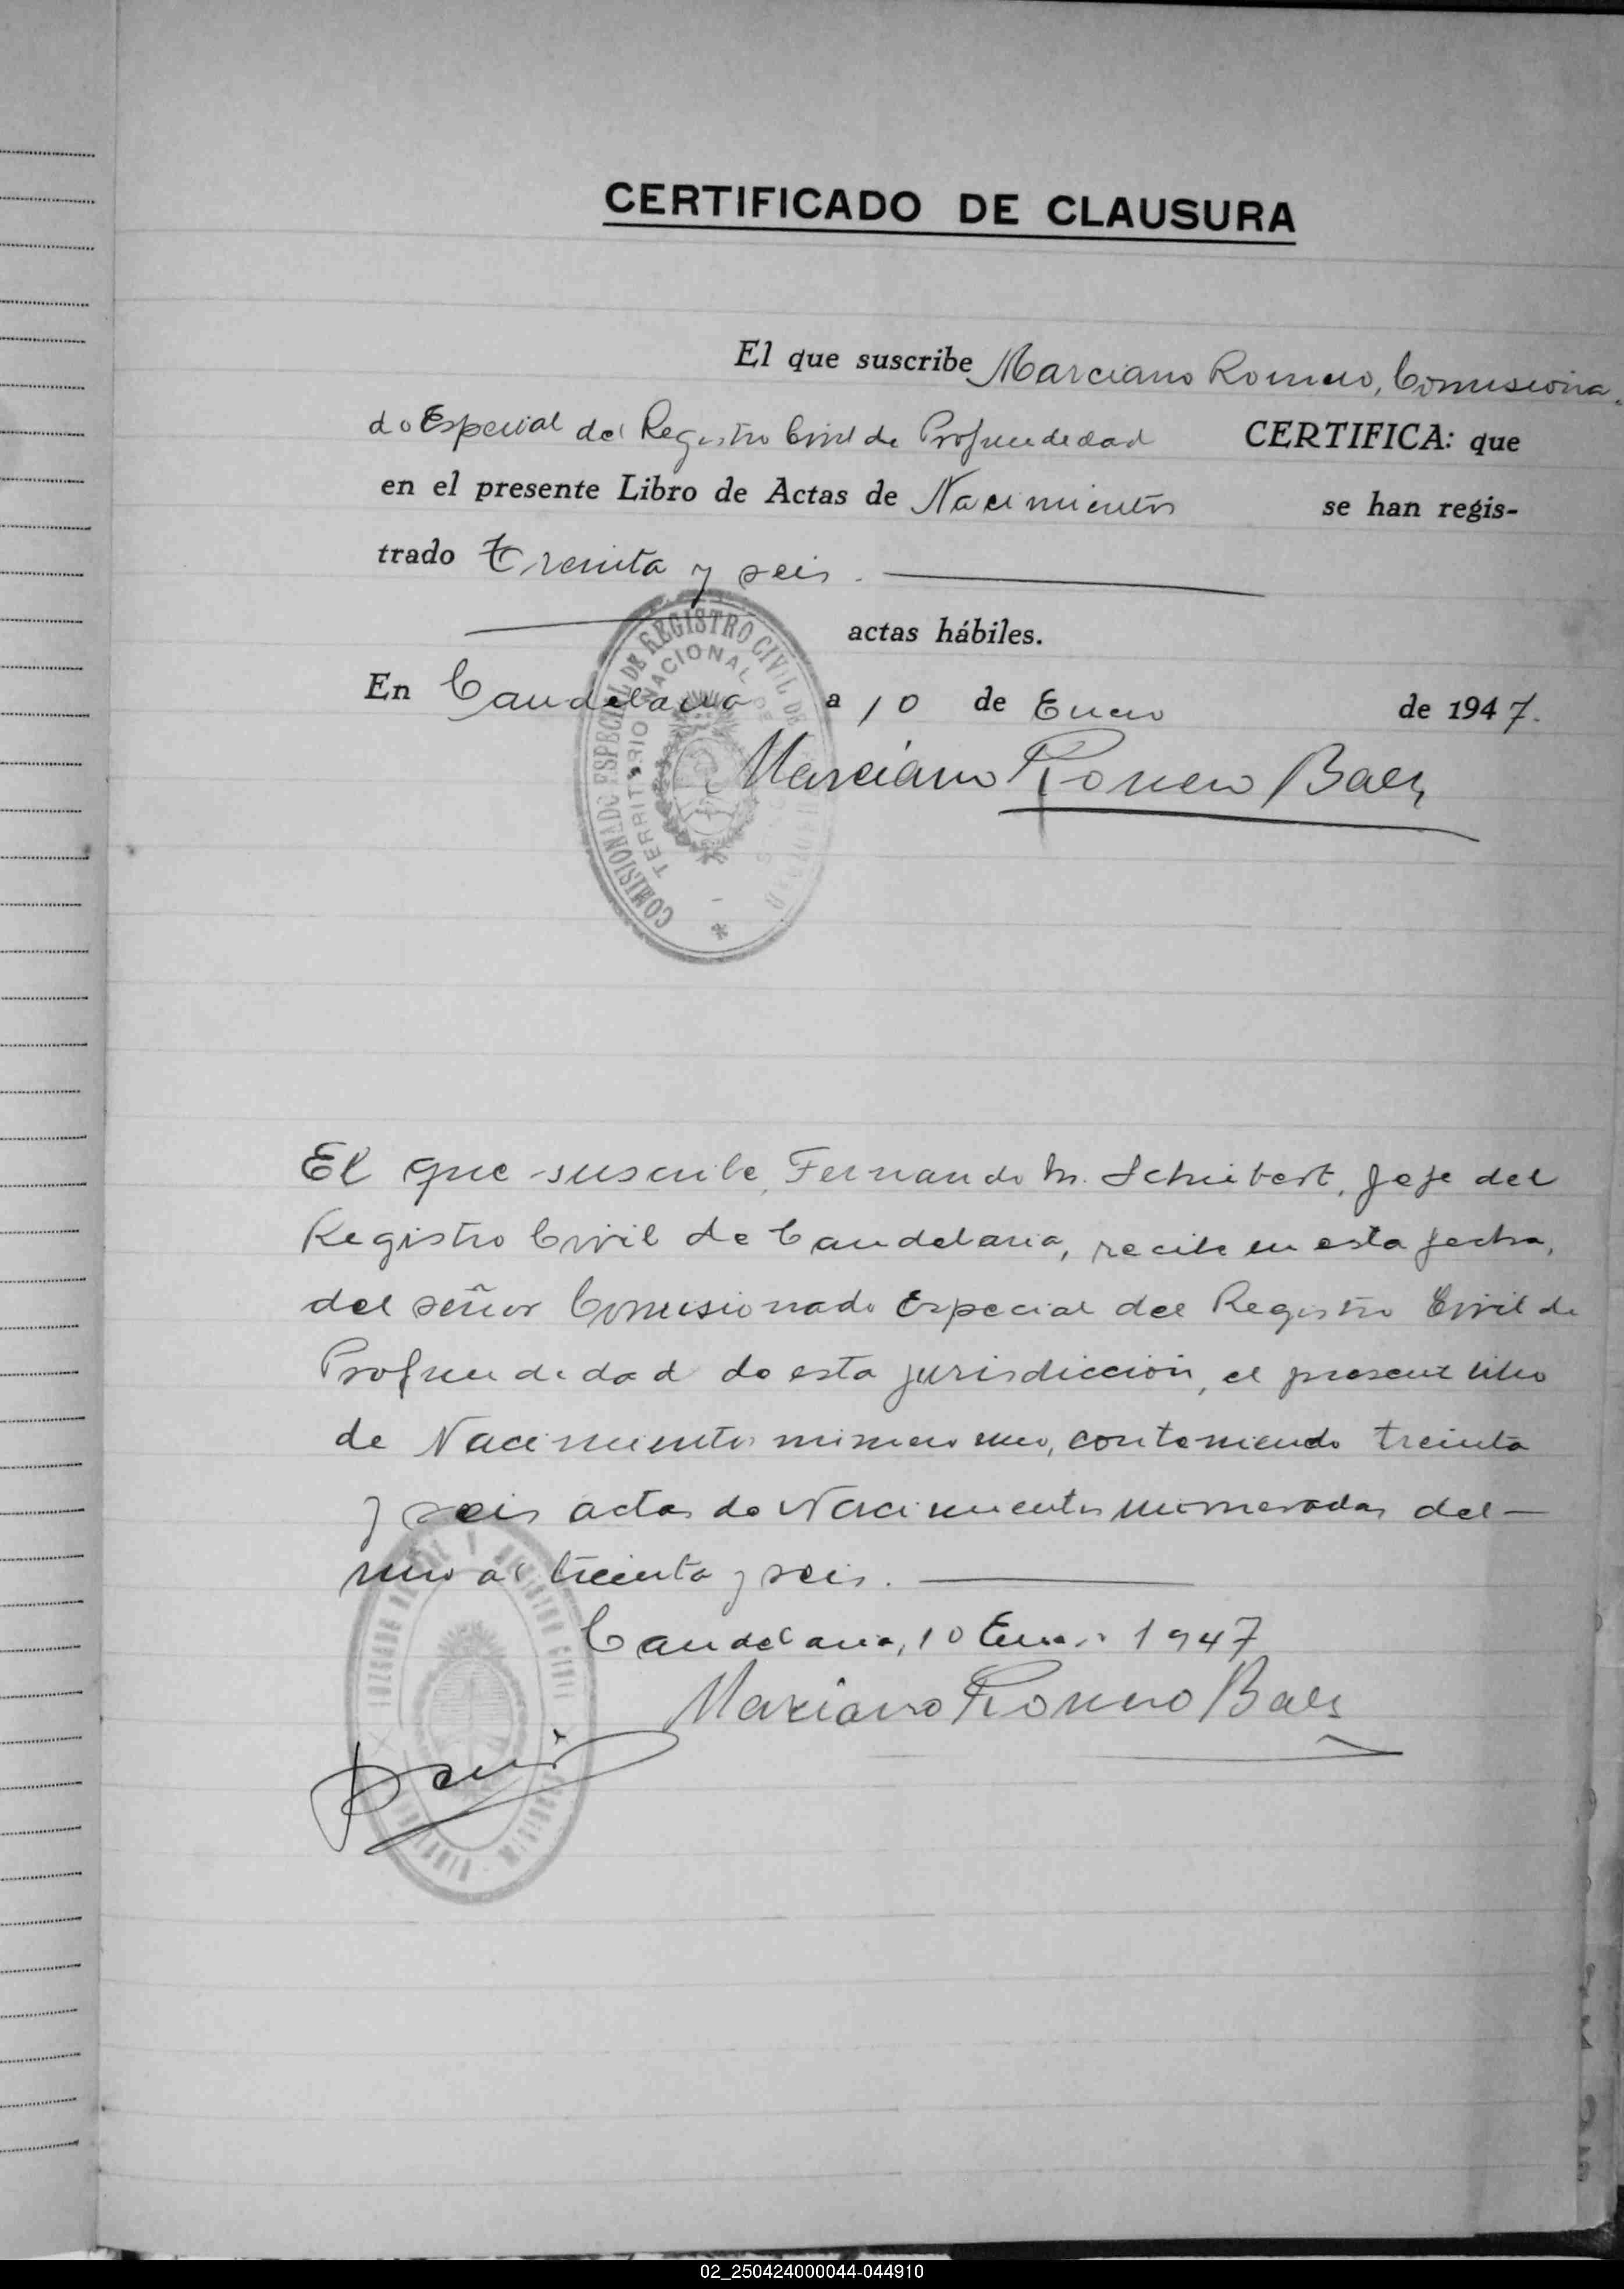 CERTIFICADO DE CLAUSURA
El que suscribe Marciano Romero, Comisiona-
do Especial del Registro Civil de Profundedad CERTIFICA: que
en el presente Libro de Actas de Nacimientos se han regis-
trado treinta y seis.
actas hábiles.
En Candelaria a 10 de Enero de 1947.
COMISIONADO ESPECIAL DE REGISTRO CIVIL DE
TERRITORIO NACIONAL DE
Marciano Romero Baez
El que suscribe, Fernando M. Schubert, Jefe del
Registro Civil de Candelaria, recibe en esta fecha,
del señor Comisionado Especial del Registro Civil de
Profundedad de esta jurisdicción, el presente libro
de Nacimientos número uno, conteniendo treinta
y seis actas de Nacimientos numeradas del
uno al treinta y seis.
Candelaria, 10 Enero 1947
Marciano Romero Baez
REGISTRO CIVIL
02_250424000044-044910